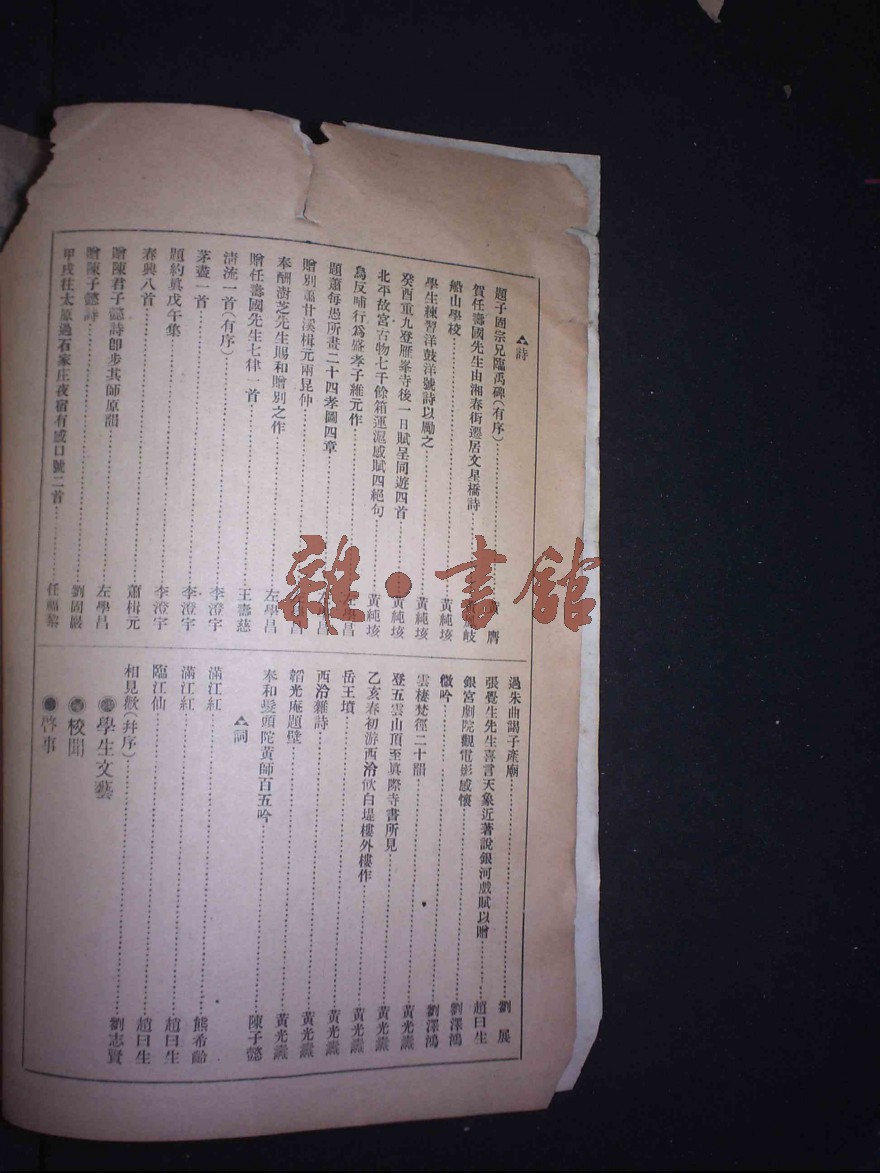 ▲詩
題子固宗兄臨禹碑(有序)……黃 膺
賀任壽國先生由湘春街遷居文星橋詩……岐
船山學校……黃純垓
學生練習洋鼓洋號詩以勵之……黃純垓
癸酉重九登雁峯寺後一日賦呈同遊四首……黃純垓
北平故宮古物七千餘箱運滬感賦四絕句……黃純垓
烏反哺行爲盛孝子維元作……昌
題蕭每愚所畫二十四孝圖四章……昌
贈別蕭廿溪楫元兩昆仲……昌
奉酬澍芝先生賜和贈別之作……左學昌
贈任壽國先生七律一首……王壽慈
清流一首(有序)……李澄宇
茅盞一首……李澄宇
題約眞戊午集……李澄宇
春興八首……蕭楫元
贈陳君子懿詩卽步其師原韻……左學昌
贈陳子懿詩……劉固嚴
甲戌往太原過石家庄夜宿有感口號二首……任福黎
過朱曲謁子產廟……劉 展
張覺生先生喜言天象近著說銀河戲賦以贈……趙日生
銀宮劇院觀電影感懷……劉澤鴻
微吟……劉澤鴻
雲棲梵徑二十韻……黃光燾
登五雲山頂至眞際寺書所見……黃光燾
乙亥春初游西洽飲白堤樓外樓作……黃光燾
岳王墳……黃光燾
西洽雜詩……黃光燾
韜光庵題壁……黃光燾
奉和髮頭陀黃師百五吟……陳子懿
▲詞
滿江紅……熊希齡
滿江紅……趙日生
臨江仙……趙日生
相見歡(幷序)……劉志賢
學生文藝
校聞
啓事
雜·書館